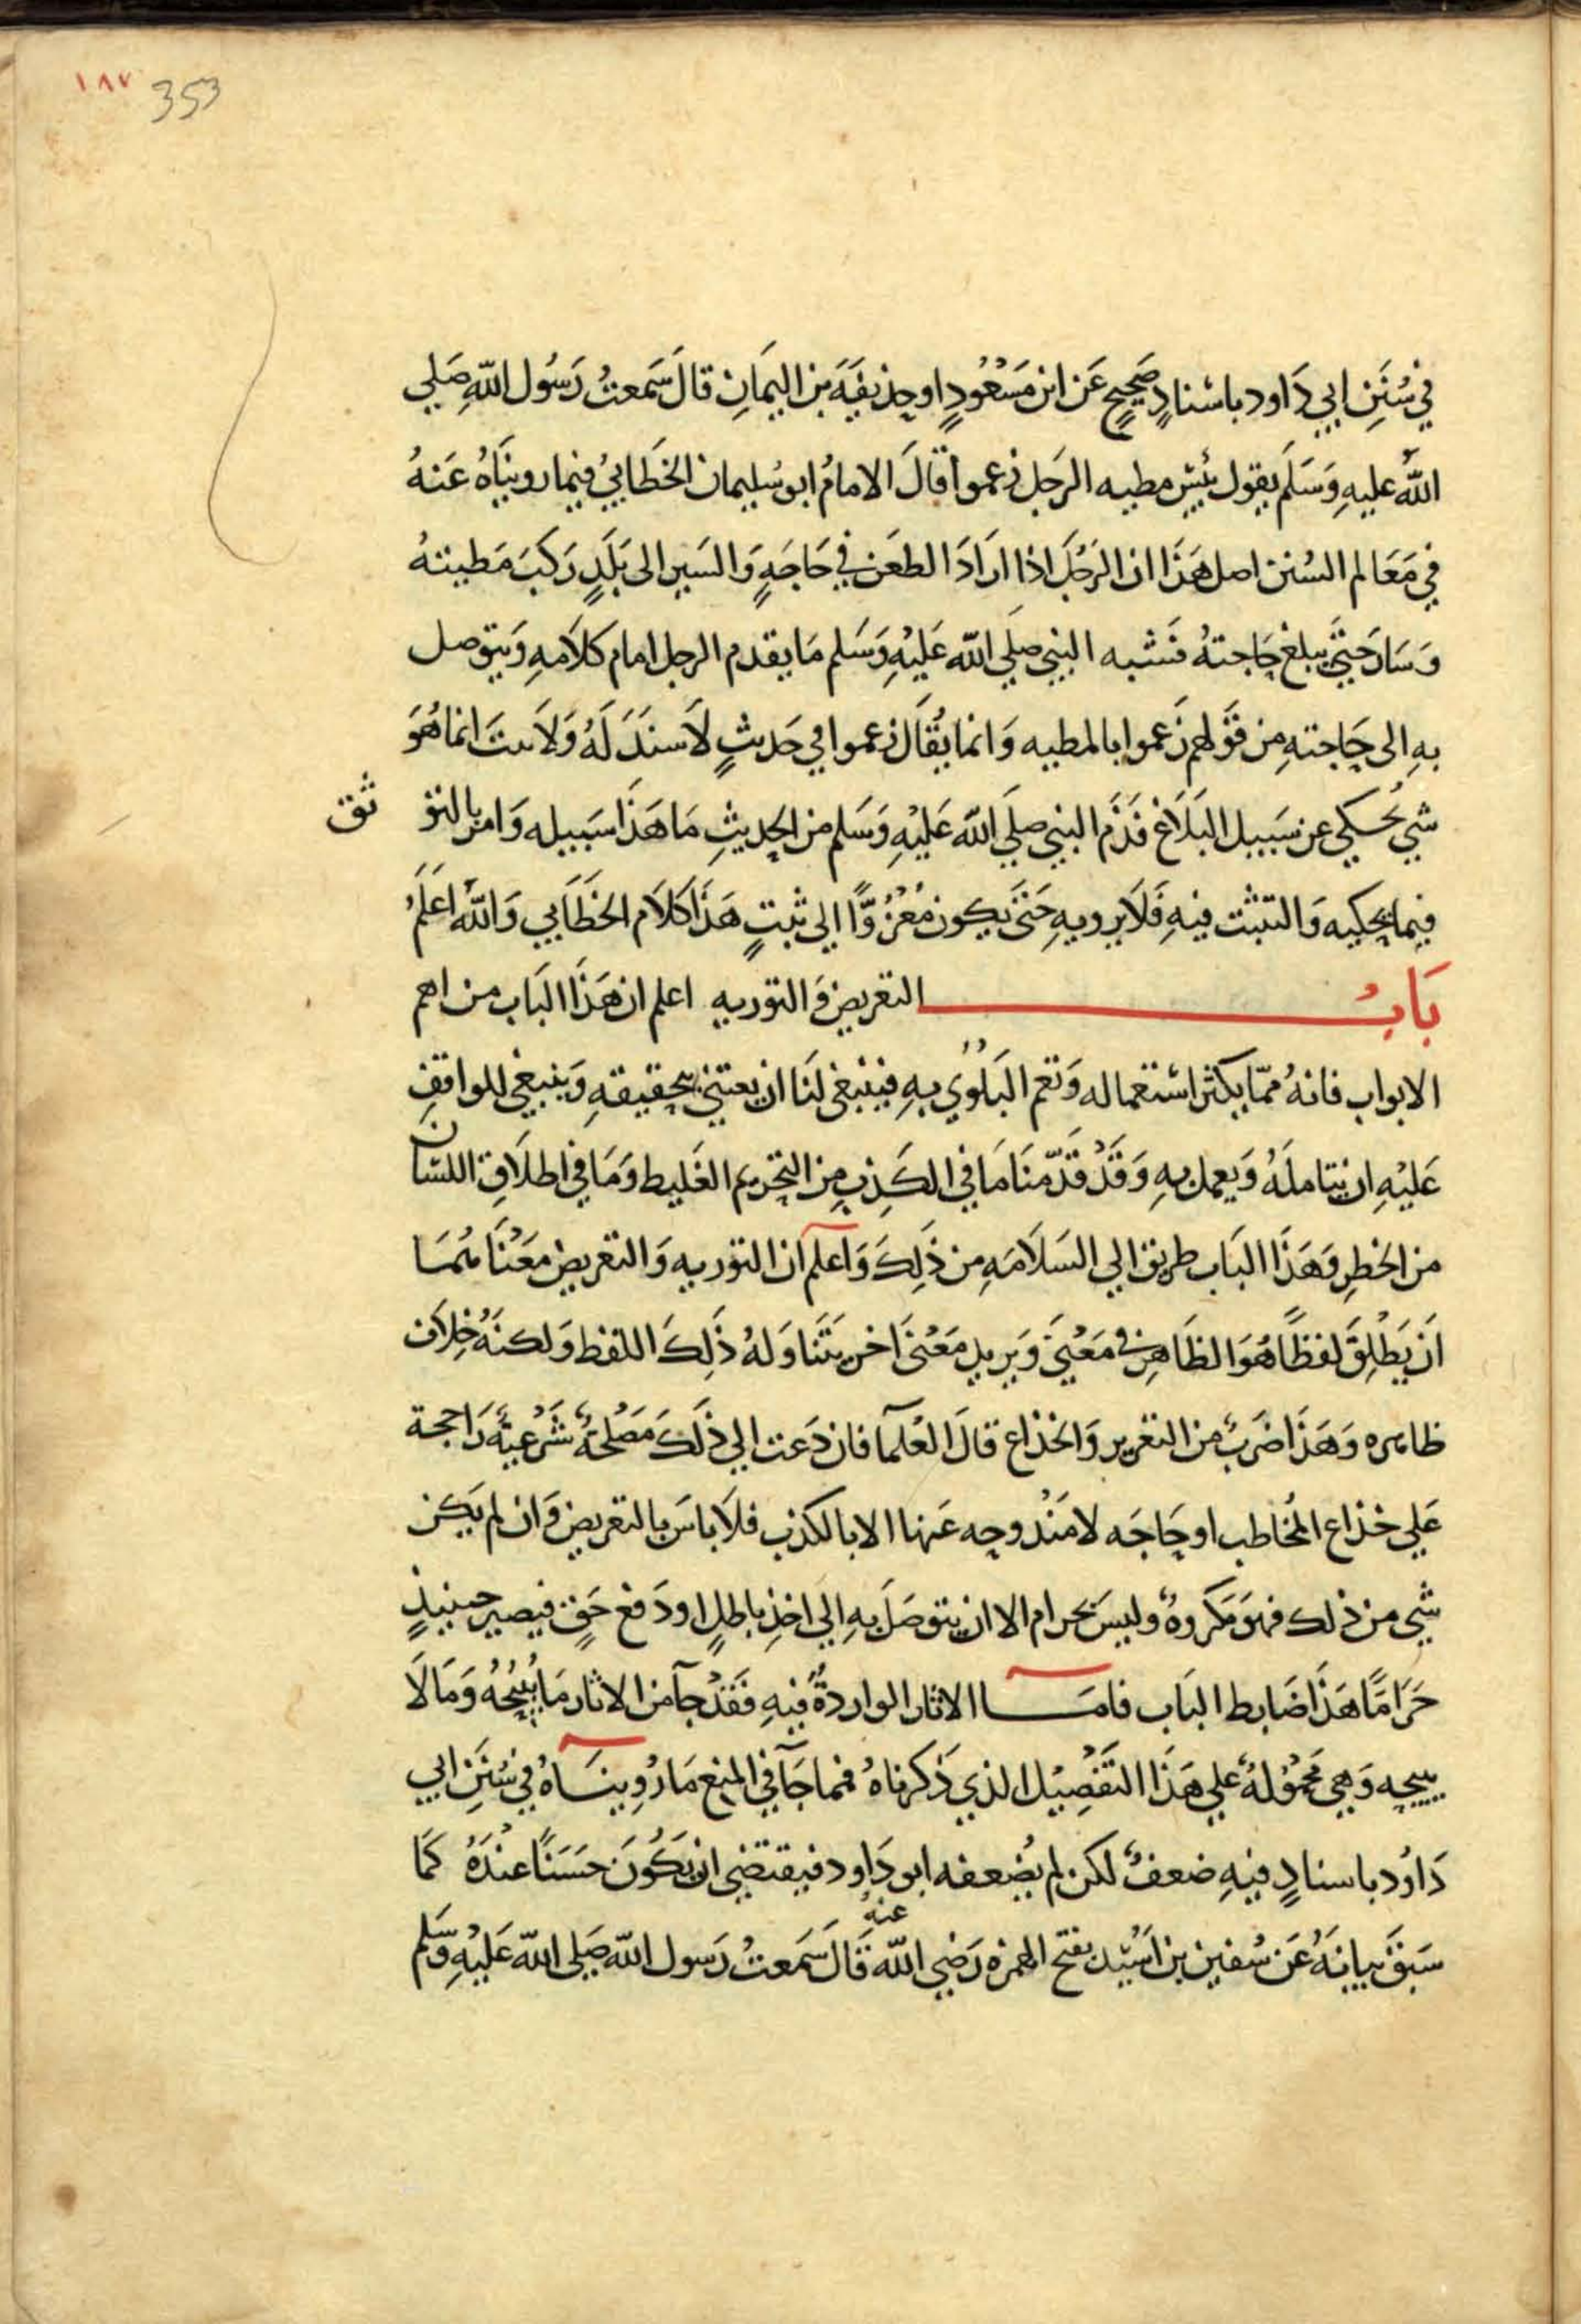 ١٨٧ 353
في سُنَنِ ابي دَاود باسْنادٍ صَحيحٍ عَن ابن مَسْعُودٍ او حذيفَةَ بن اليمَانِ قالَ سَمعتُ رَسُول اللهِ صَلي
اللهُ عليهِ وَسَلَم يقول بئسَ مطيه الرجَل زعموا قالَ الامامُ ابو سُليمان الخطَابيُ فيما رويناهُ عَنهُ
في مَعَالم السُنن اصل هَذَا ان الرَجُلَ اذا ارَادَ الطعَن في حَاجَةٍ وَالسَير الى بَلَدٍ رَكبَ مَطيتهُ
وَسَارَ حَتيَ يبلغ حَاجتهُ فَشبه النبي صلَي الله عَليْهِ وَسَلم مَا يقدم الرجل امام كلاَمهِ وَيتوصل
بهِ الى حَاجتهِ مِن قوَلهم زَعموا بالمطيه وَانما يُقَال زعموا في حَديثٍ لاَ سنَدَ لَهُ وَلاَ ثبتَ انما هُوَ
شي يُحكي عن سَبيل البَلاَغ فَذَم النبي صلَي الله عَليْهِ وَسَلم من الحديثِ مَا هَذَا سَبيله وَامر بالتو ثق
فيما يحكيه وَالتثبت فيهِ فَلاَ يرويهِ حَتىَ يكون مَعْزُوًّا الي ثبتٍ هَذَا كَلاَم الخطَابي وَاللهُ اعَلمُ
بَابُ التعريض وَالتوريه اعلم ان هَذَا البَاب من اهم
الابواب فانهُ ممّا يكثر اسْتعماله وَتعم البَلْوُي بهِ فينبغي لنَا ان يعتني بتحقيقهِ وَينبغي للواقفِ
عَليْهِ ان يتاملَهُ وَيعمل بهِ وَقَدْ قدّمنَا مَا في الكَذبِ مِن التحريم الغَليط وَمَا في اطلاَقِ اللسَان
من الخطرِ وَهَذَا البَاب طريق الي السَلاَمَهِ من ذَلِكَ وَاعلم ان التوريه وَالتعريض مَعْنَاهُمَا
اَن يَطْلِقَ لفظًا هُوَ الظَاهِر في مَعْنيً وَيريد مَعْنىَ اخر يتَنَاوَلهُ ذَلِكَ اللفظ وَلكنهُ خِلاَف
ظاهره وَهَذَا ضَربٌ من التغرير وَالخذاع قالَ العُلمآ فان دَعت الي ذَلكَ مَصْلَحةٌ شَرْعيةٌ رَاجحة
عَلي خذاع المُخاطب او حَاجَه لا مَنْدوحه عَنها الا بالكذب فلاَ باسَ بالتعريض وَان لم يَكن
شي من ذلك فهوَ مَكروهٌ وليسَ بحرام الا ان يتوصَلَ بهِ الي اخذِ باطلٍ او دَفع حَقٍ فيصير حينيذٍ
حَرَامًا هَذَا ضَابط البَاب فامَـا الاثار الواردةُ فيهِ فَقدْ جآ من الاثار مَا يُبيْحُهُ وَمَا لاَ
يبيحه وَهي مَحموْلهٌ علي هَذَا التَفْصِيْل الذي ذَكرناهُ فما جَآ في المنع مَا رُوِينَـاهُ في سُنَنِ ابي
دَاوُد باسنادٍ فيهِ ضعفٌ لكن لم يُضعفه ابو دَاود فيقتضي ان يَكُونَ حسَنًا عنْدَهُ كَمَا
سَبقَ بيانهُ عَن سُفين بن اَسِيْد بفتح الهمزه رَضي الله عنه قَالَ سَمعتُ رَسول الله صَلي الله عَليْهِ وَسَلم